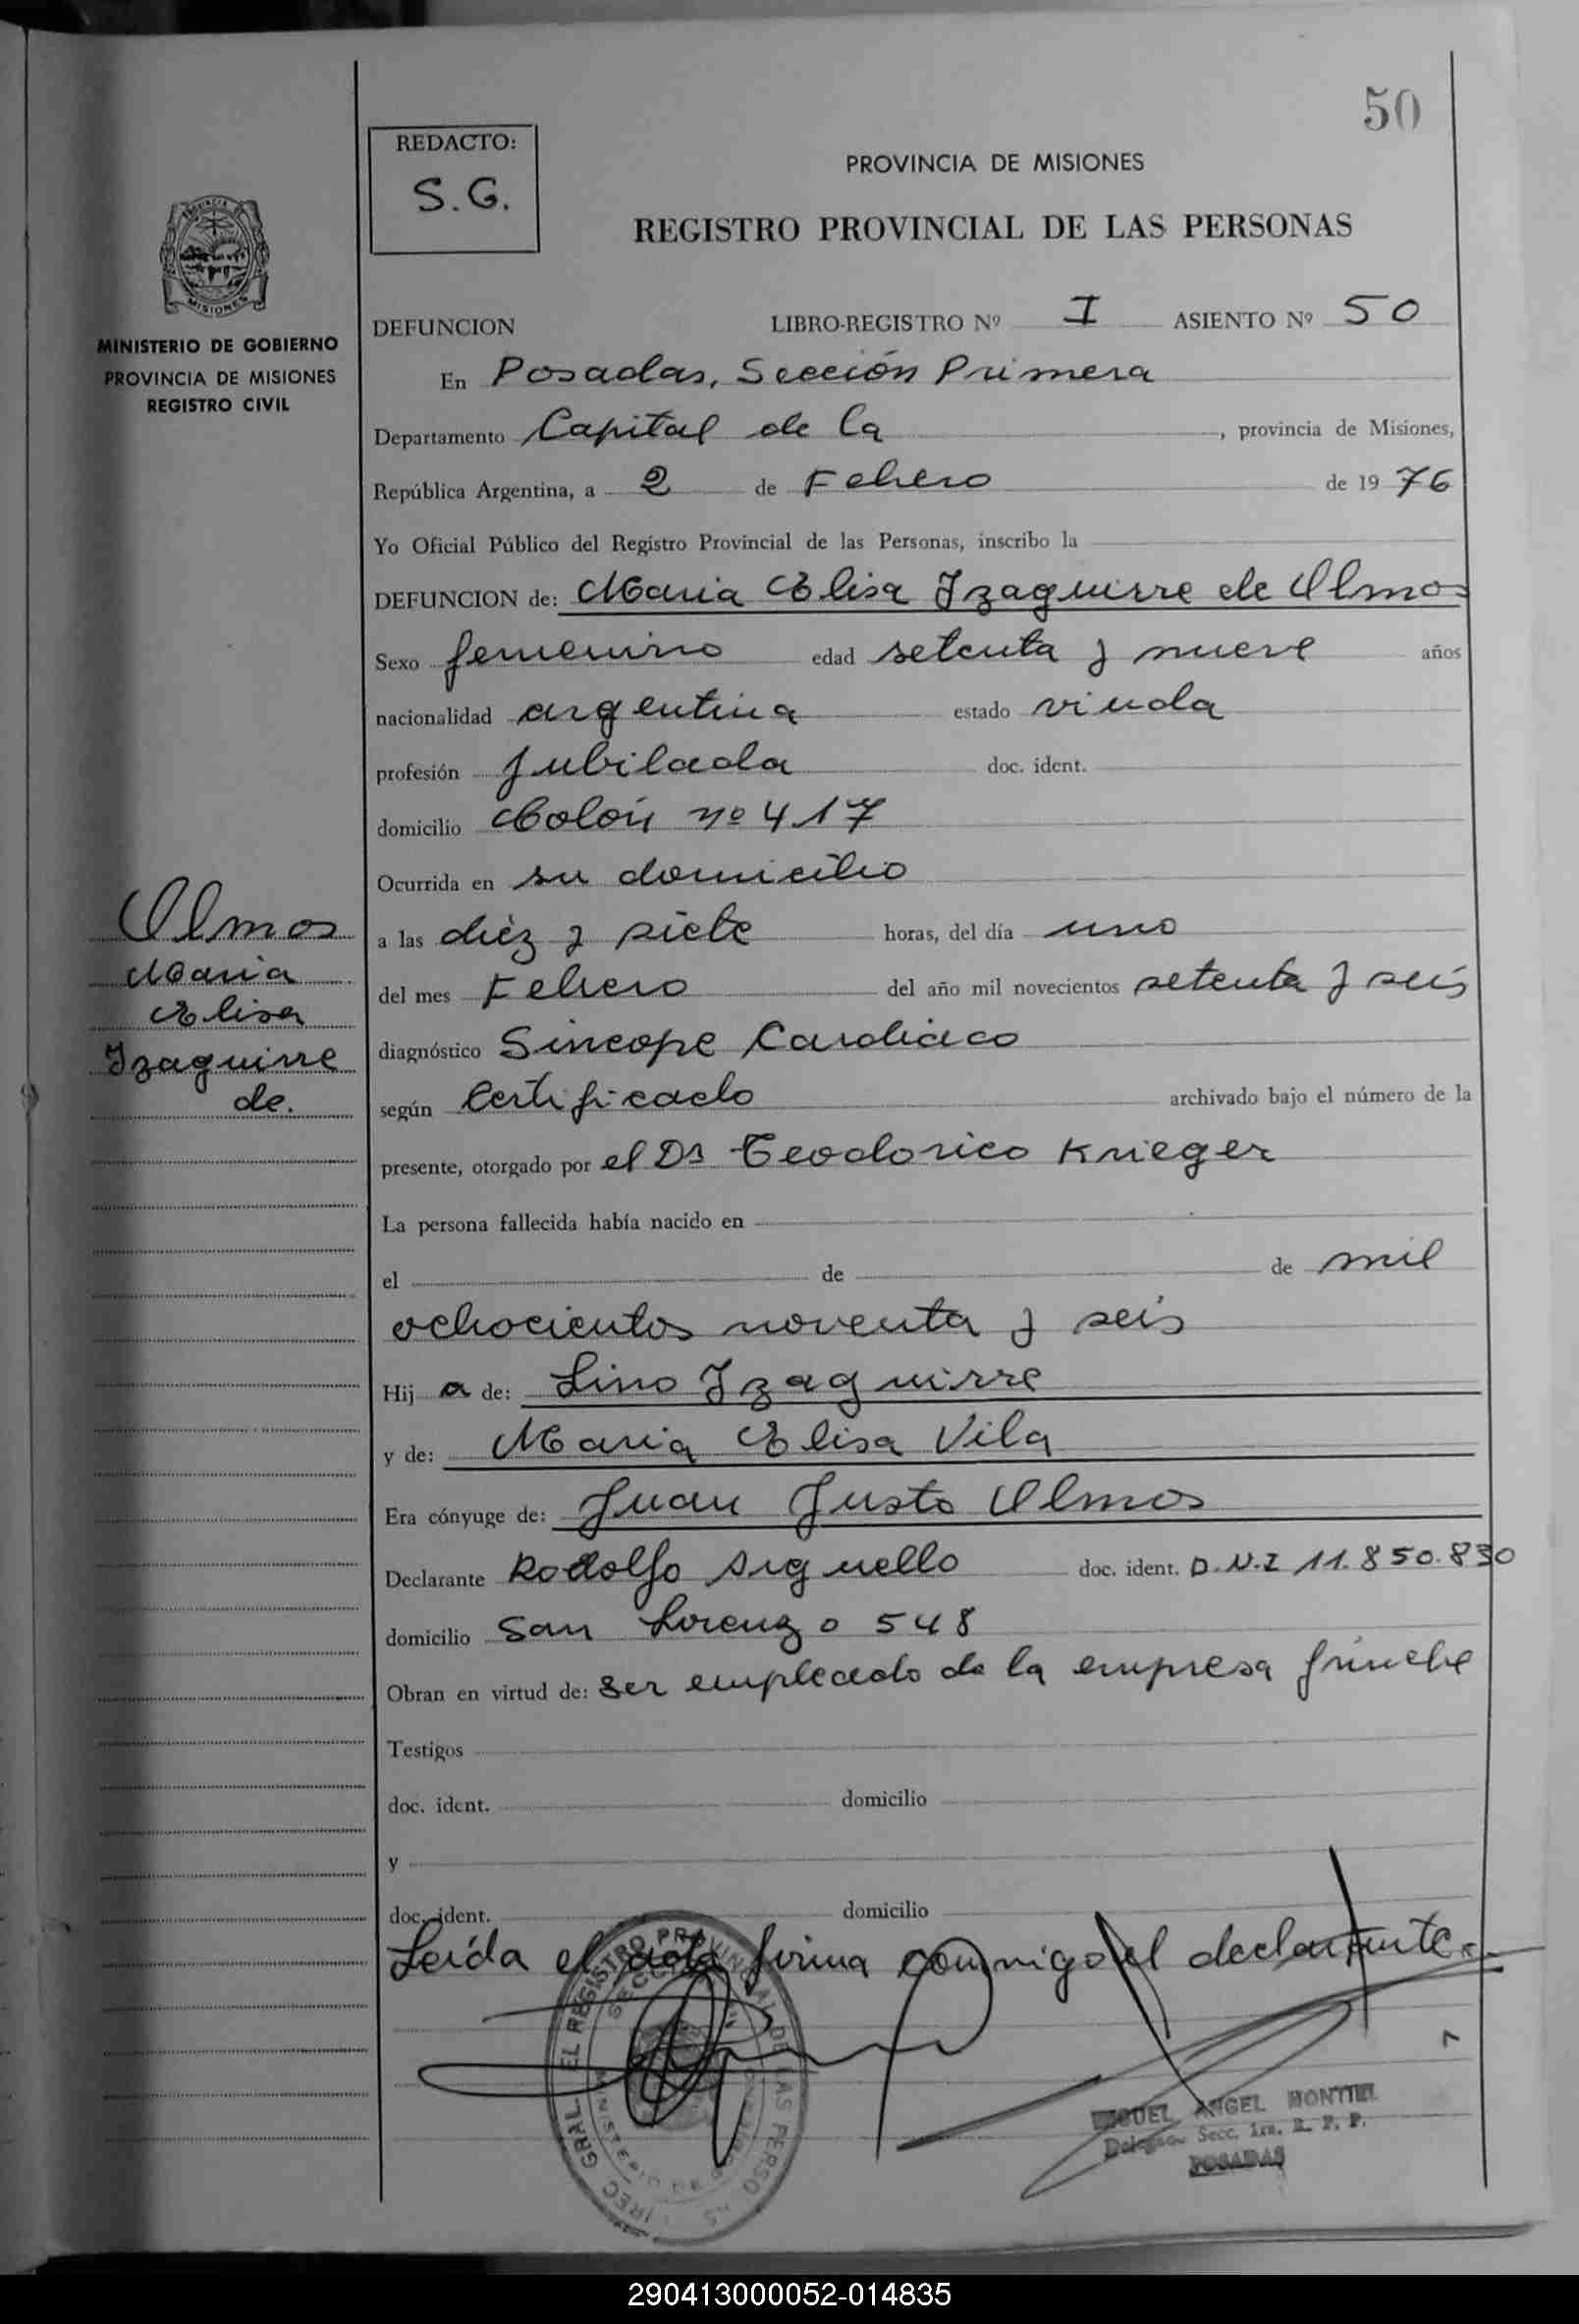 50
REDACTO:
S.G.
PROVINCIA DE MISIONES
REGISTRO PROVINCIAL DE LAS PERSONAS
MISIONES
MINISTERIO DE GOBIERNO
PROVINCIA DE MISIONES
REGISTRO CIVIL
DEFUNCION LIBRO-REGISTRO Nº I ASIENTO Nº 50
En Posadas, Sección Primera
Departamento Capital de la , provincia de Misiones,
República Argentina, a 2 de Febrero de 1976
Yo Oficial Público del Registro Provincial de las Personas, inscribo la
DEFUNCION de: Maria Elisa Izaguirre de Olmos
Sexo femenino edad setenta y nueve años
nacionalidad argentina estado viuda
profesión Jubilada doc. ident.
domicilio Colón nº 417
Ocurrida en su domicilio
a las diéz y siete horas, del día uno
del mes Febrero del año mil novecientos setenta y seis
diagnóstico Sincope Cardíaco
según Certificado archivado bajo el número de la
presente, otorgado por el Dr Teodorico Krieger
La persona fallecida había nacido en
el de de mil
ochocientos noventa y seis
Hij a de: Lino Izaguirre
y de: Maria Elisa Vila
Era cónyuge de: Juan Justo Olmos
Declarante Rodolfo Arguello doc. ident. D.N.I 11.850.830
domicilio San Lorenzo 548
Obran en virtud de: Ser empleado de la empresa fúnebre
Testigos
doc. ident. domicilio
y
doc. ident. domicilio
Leída el acta firma conmigo el declarante.
Olmos
Maria
Elisa
Izaguirre
de.
MIGUEL ANGEL MONTIEL
Delegado Secc. 1ra. R. P. P.
POSADAS
290413000052-014835